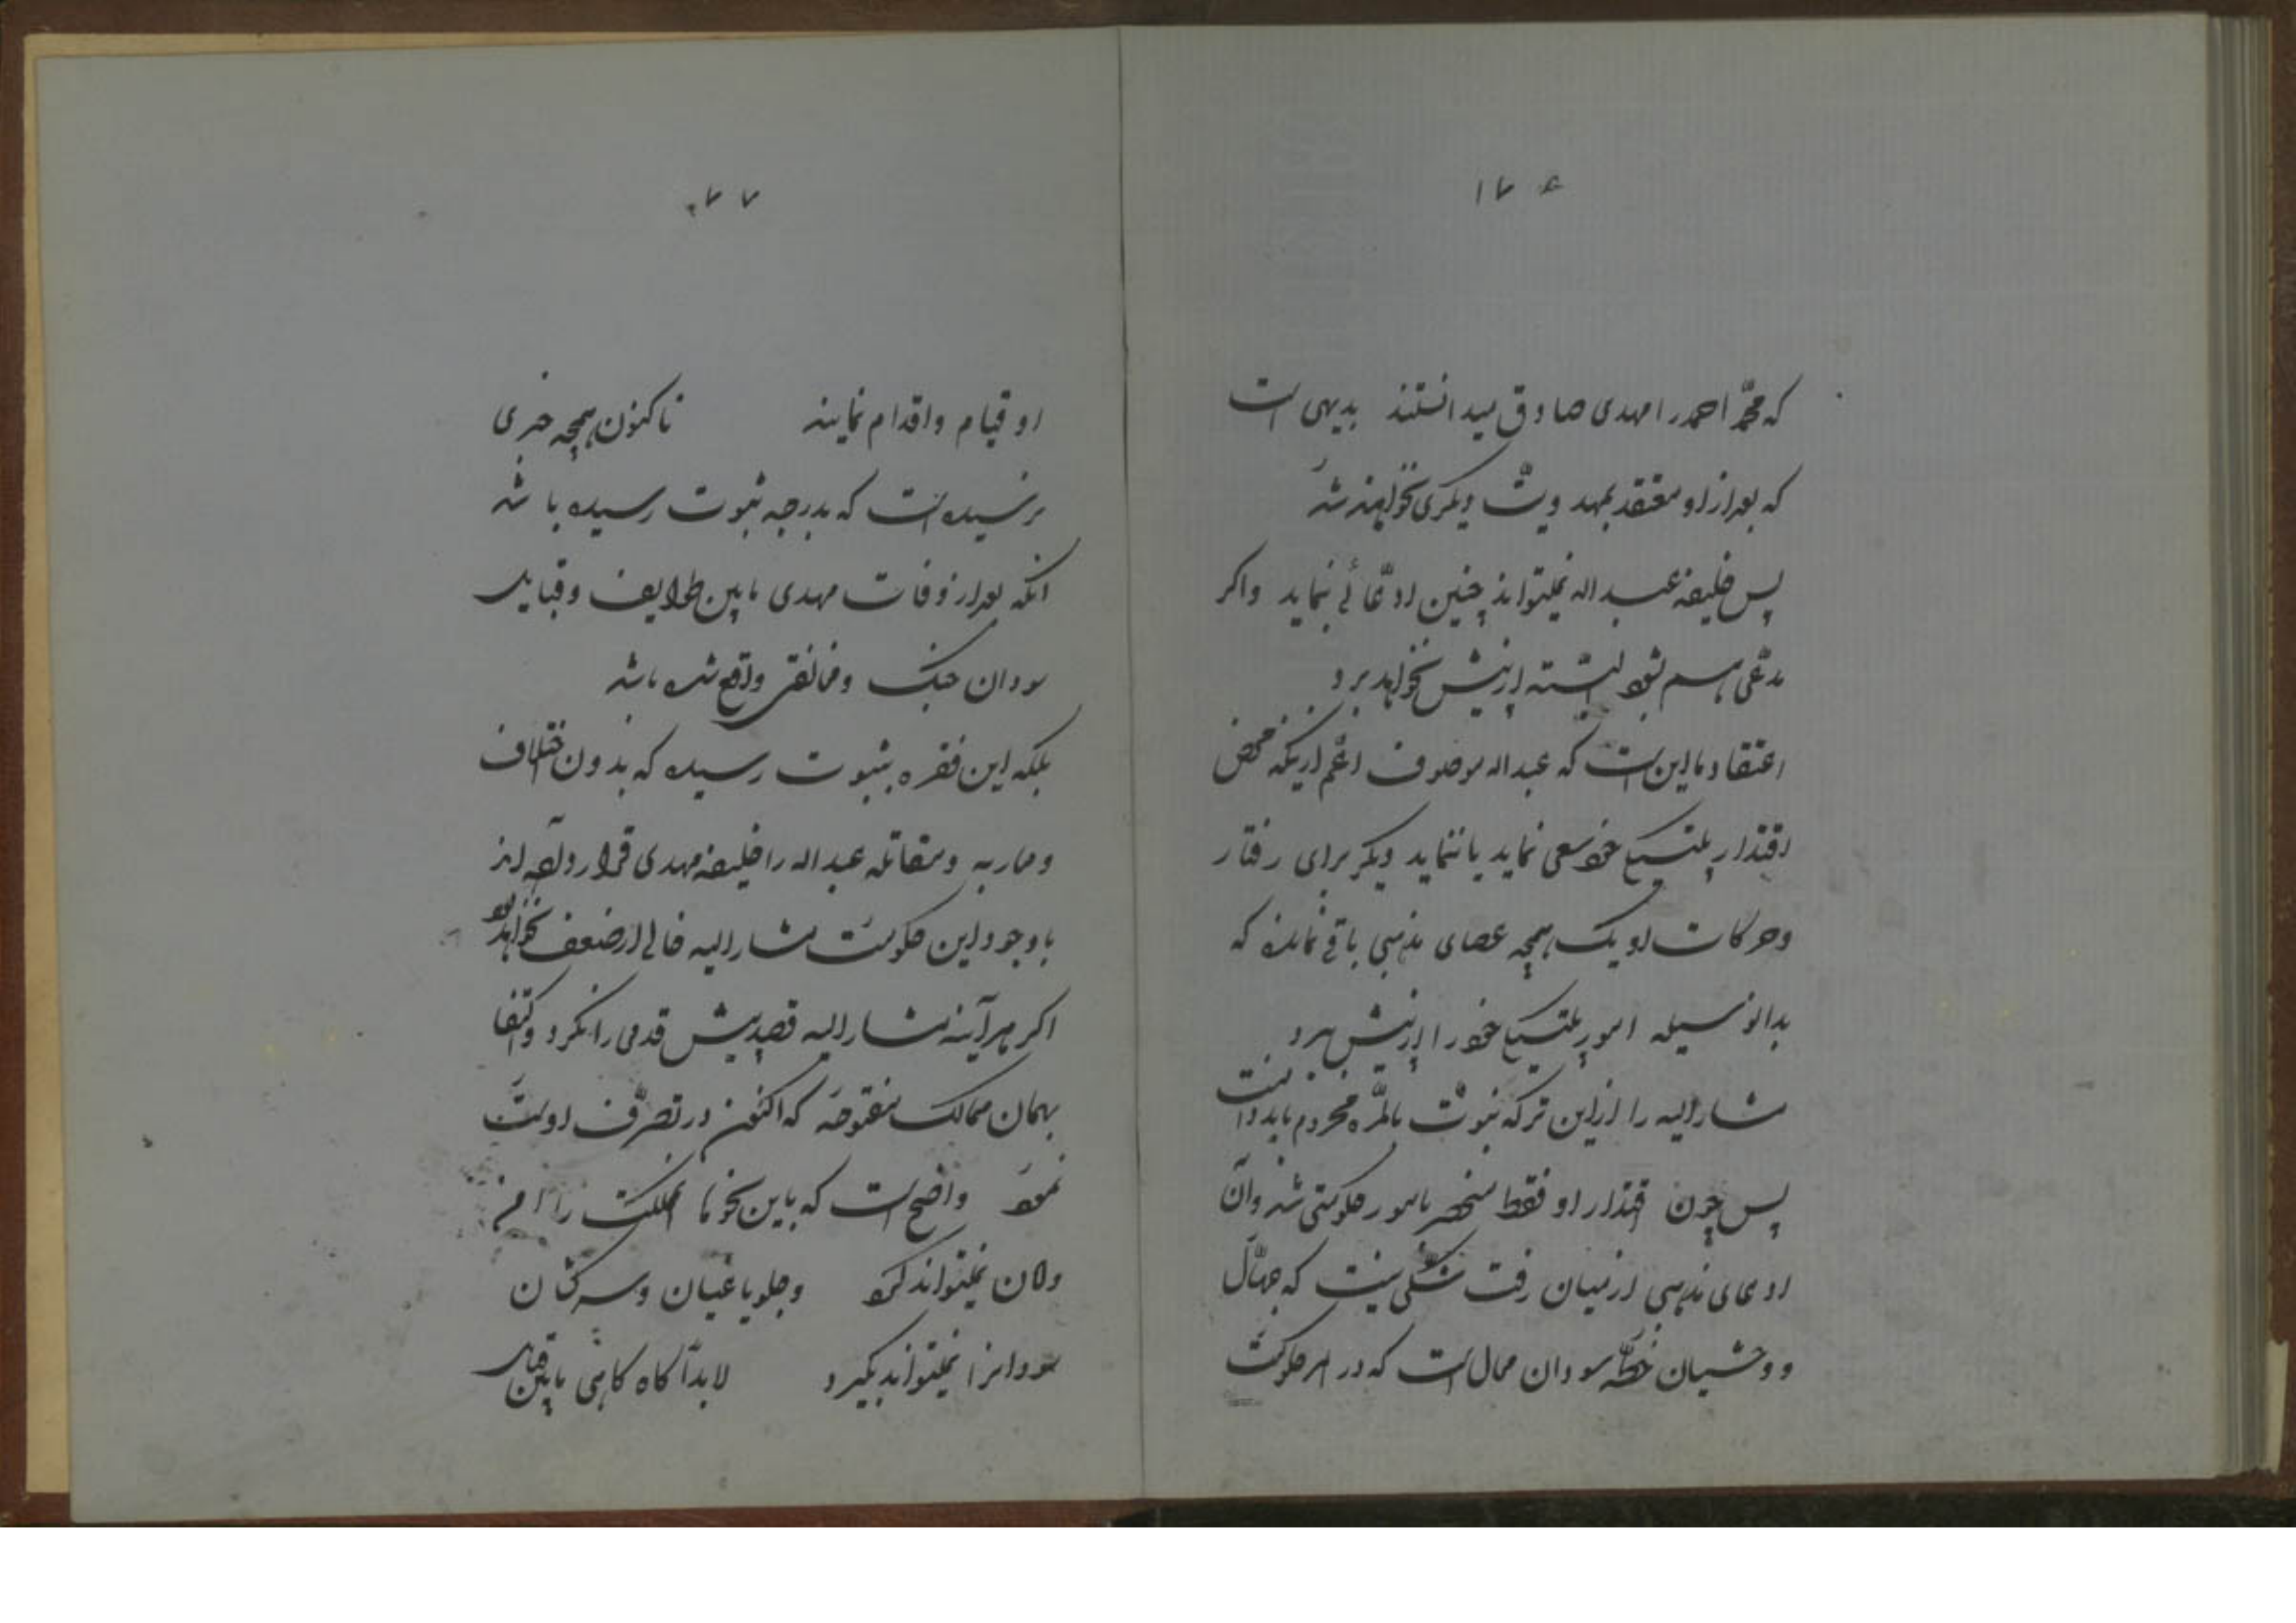 ۱۷۶
که محمّد احمد را مهدی صادق میدانستند بدیهی است
که بعد از او معتقد بمهدویّت دیگری نخواهند شد
پس خلیفه عبداله نمیتواند چنین ادّعائی بنماید واگر
مدّعی هم بشود البتّه از پیش نخواهد برد
اعتقاد ما این است که عبداله موصوف اعّم از اینکه محض
اقتدار پلتیکی خود سعی نماید یا ننماید دیگر برای رفتار
وحرکات او یک همچه عصای مذهبی باقی نمانده که
بدانوسیله امور پلتیکی خود را از پیش ببرد
مشارالیه را از این ترکه نبوّت بالمرّه محروم باید دانست
پس چون اقتدار او فقط منحصر بامور حکومتی شد وآن
ادعای مذهبی از میان رفت شکّی نیست که جهّال
ووحشیان خطّه سودان محال است که در امر حکومت
۷۷
او قیام واقدام نمایند تاکنون همچه خبری
نرسیده است که بدرجه ثبوت رسیده باشد
آنکه بعد از وفات مهدی مابین طوایف وقبایل
سودان جنگ ومخالفتی واقع شده باشد
بلکه این فقره بثبوت رسیده که بدون اختلاف
ومحاربه ومقاتله عبداله را خلیفه مهدی قرار داده اند
باوجود این حکومت مشارالیه خالی از ضعف نخواهد بود
اکر هرآینه مشارالیه قصد پیش قدمی را نکرد واکتفا
بهمان ممالک مفتوحه که اکنون در تصرّف اوست
نمود واضح است که باین نحوها مملکت را امن
وامان نمیتواند کرد وجلو یاغیان وسرکشان
سودانرا نمیتواند بگیرد لابداً گاه گاهی مابین قبایل